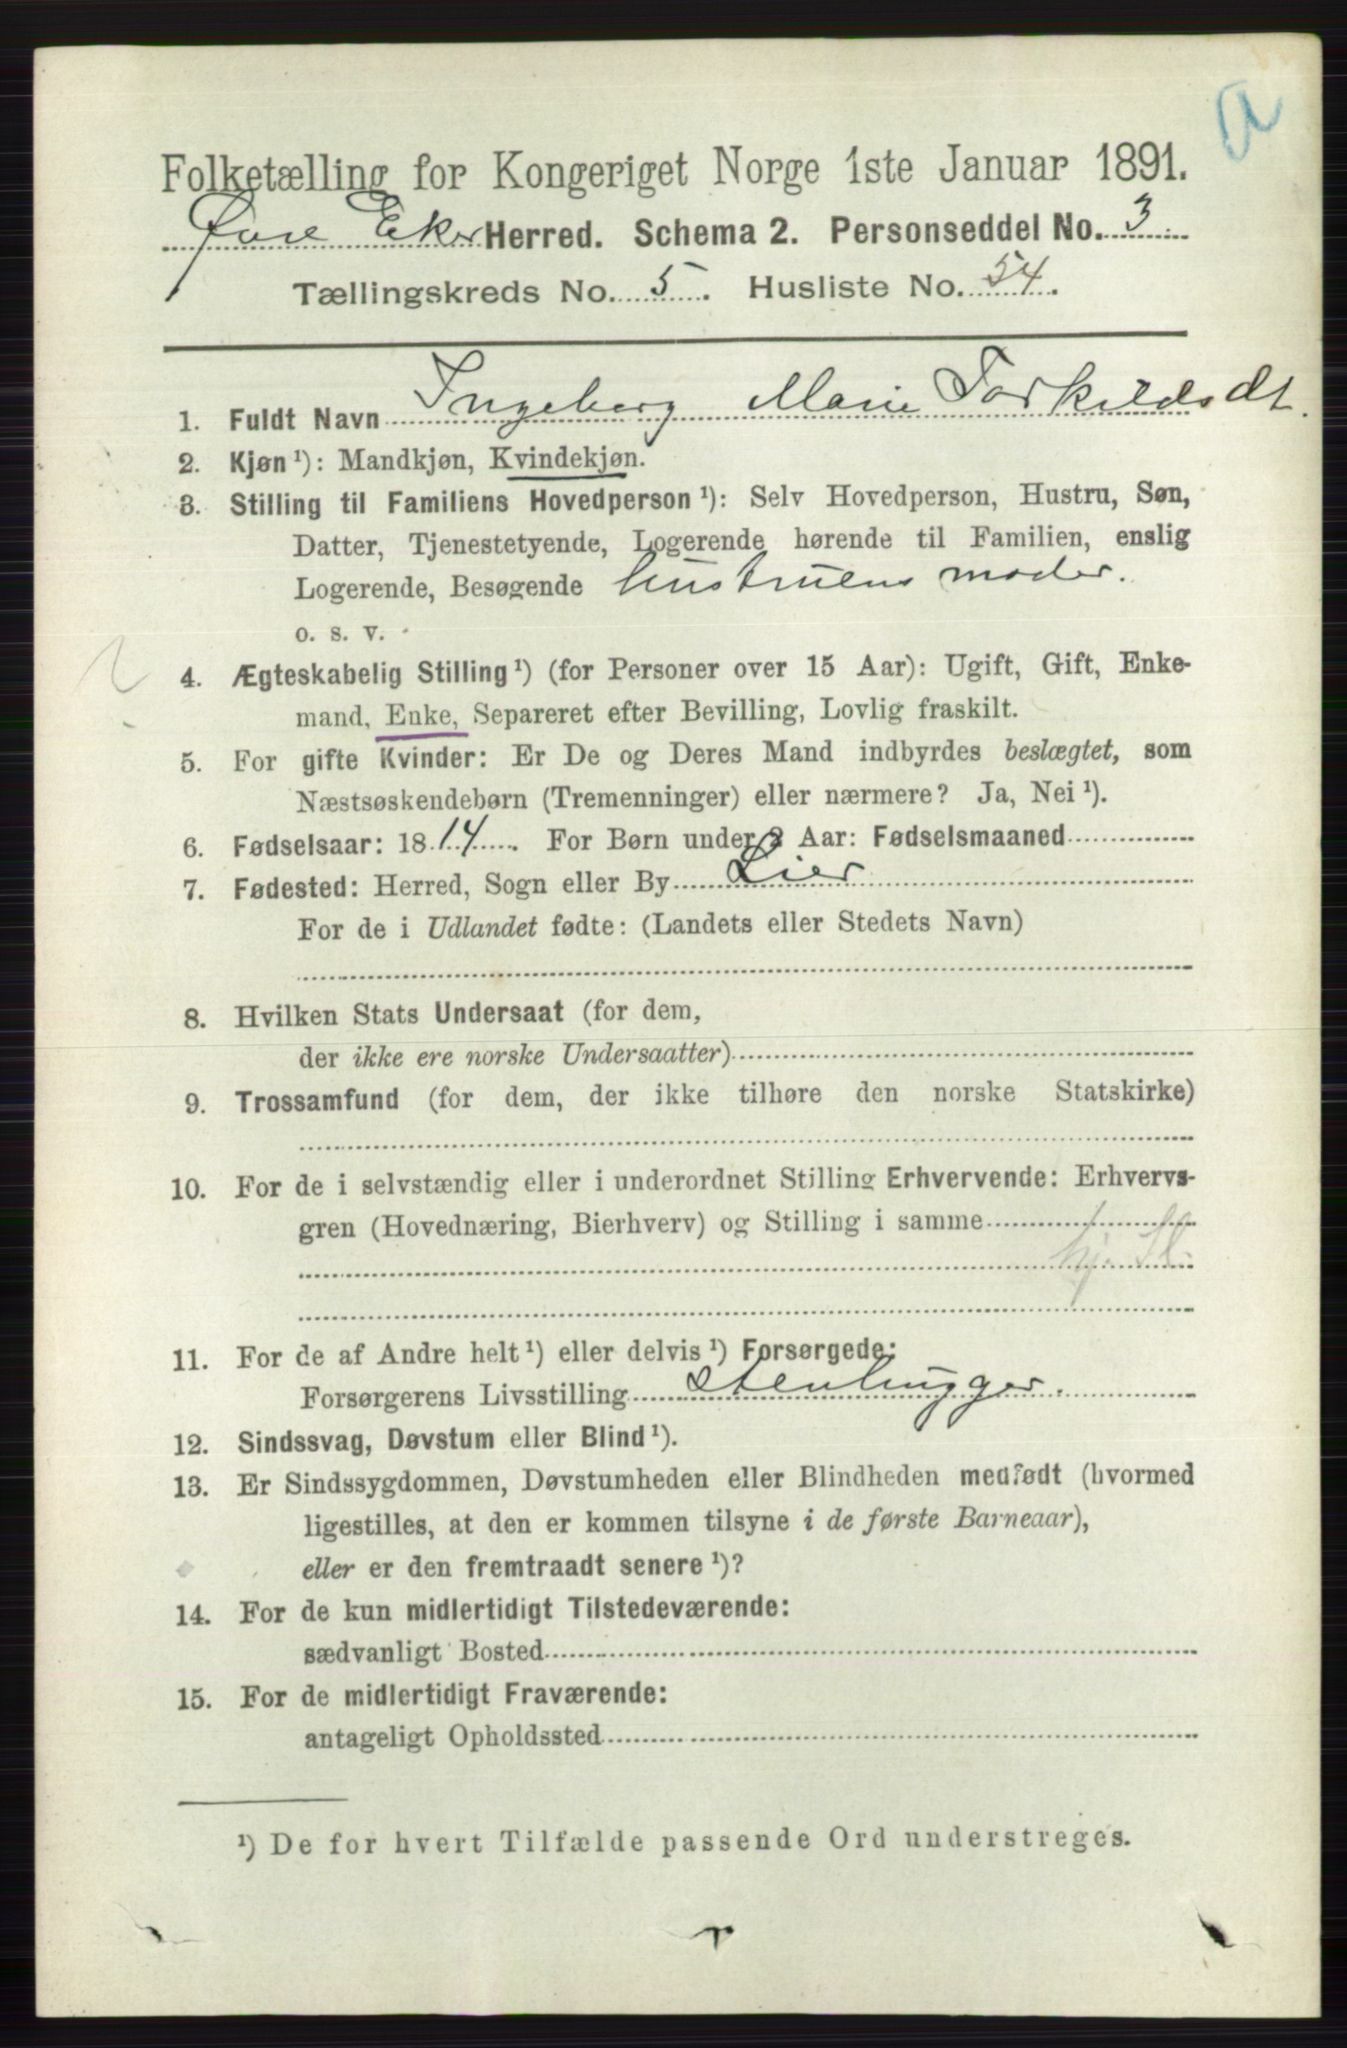 a
Folketælling for Kongeriget Norge 1ste Januar 1891.
Øvre Eker Herred. Schema 2. Personseddel No. 3
Tællingskreds No. 5. Husliste No. 54.
1. Fuldt Navn Ingeborg Marie Torkildsdt.
2. Kjøn¹): Mandkjøn, Kvindekjøn.
3. Stilling til Familiens Hovedperson¹): Selv Hovedperson, Hustru, Søn,
Datter, Tjenestetyende, Logerende hørende til Familien, enslig
Logerende, Besøgende hustruens moder.
o. s. v.
4. Ægteskabelig Stilling¹) (for Personer over 15 Aar): Ugift, Gift, Enke-
mand, Enke, Separeret efter Bevilling, Lovlig fraskilt.
5. For gifte Kvinder: Er De og Deres Mand indbyrdes beslægtet, som
Næstsøskendebørn (Tremenninger) eller nærmere? Ja, Nei¹).
6. Fødselsaar: 1814. For Børn under 2 Aar: Fødselsmaaned
7. Fødested: Herred, Sogn eller By Lier
For de i Udlandet fødte: (Landets eller Stedets Navn)
8. Hvilken Stats Undersaat (for dem,
der ikke ere norske Undersaatter)
9. Trossamfund (for dem, der ikke tilhøre den norske Statskirke)
10. For de i selvstændig eller i underordnet Stilling Erhvervende: Erhvervs-
gren (Hovednæring, Bierhverv) og Stilling i samme
11. For de af Andre helt¹) eller delvis¹) Forsørgede:
Forsørgerens Livsstilling Stenhugger.
12. Sindssvag, Døvstum eller Blind¹).
13. Er Sindssygdommen, Døvstumheden eller Blindheden medfødt (hvormed
ligestilles, at den er kommen tilsyne i de første Barneaar),
eller er den fremtraadt senere¹)?
14. For de kun midlertidigt Tilstedeværende:
sædvanligt Bosted
15. For de midlertidigt Fraværende:
antageligt Opholdssted
¹) De for hvert Tilfælde passende Ord understreges.